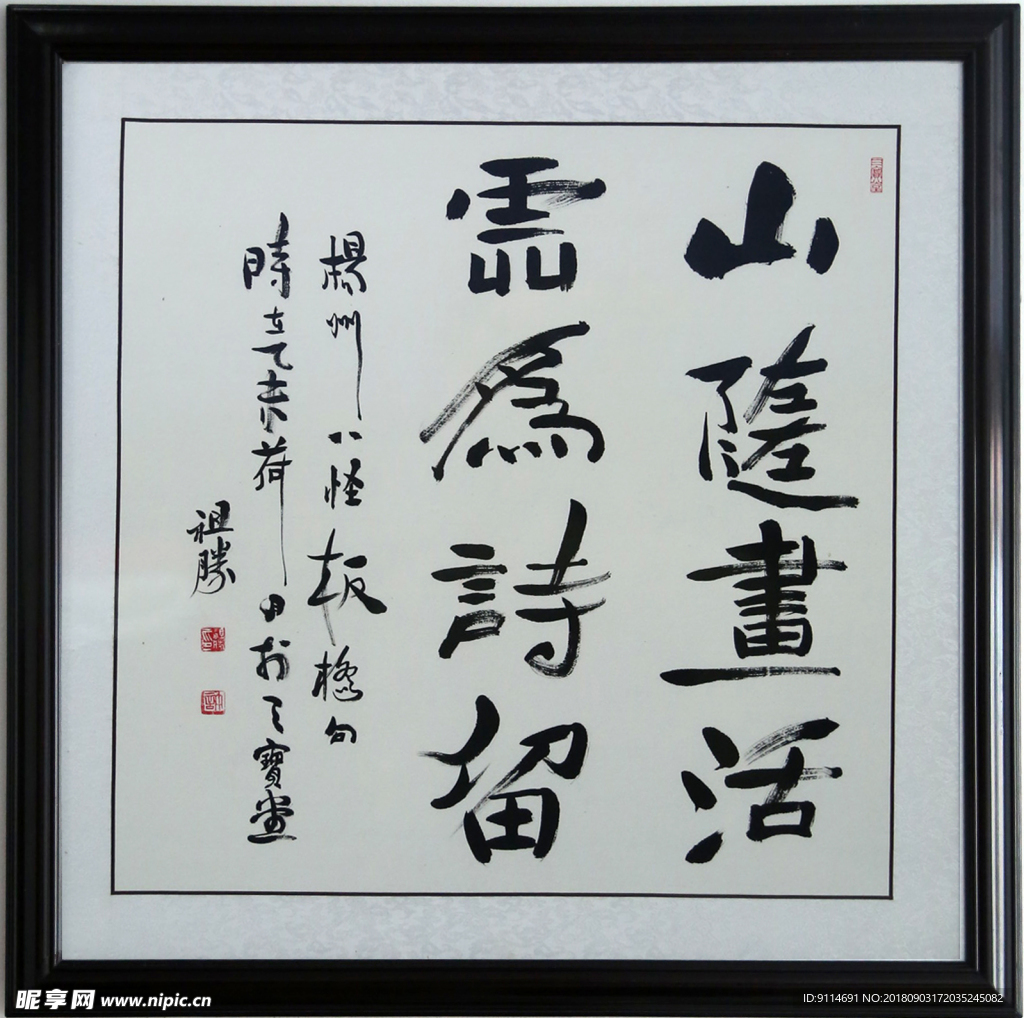 山隨畫活
雲為詩留
楊州八怪板橋句
時在乙未荷月於三寶堂
祖勝
昵享网 www.nipic.cn
ID:9114691 NO:20180903172035245082